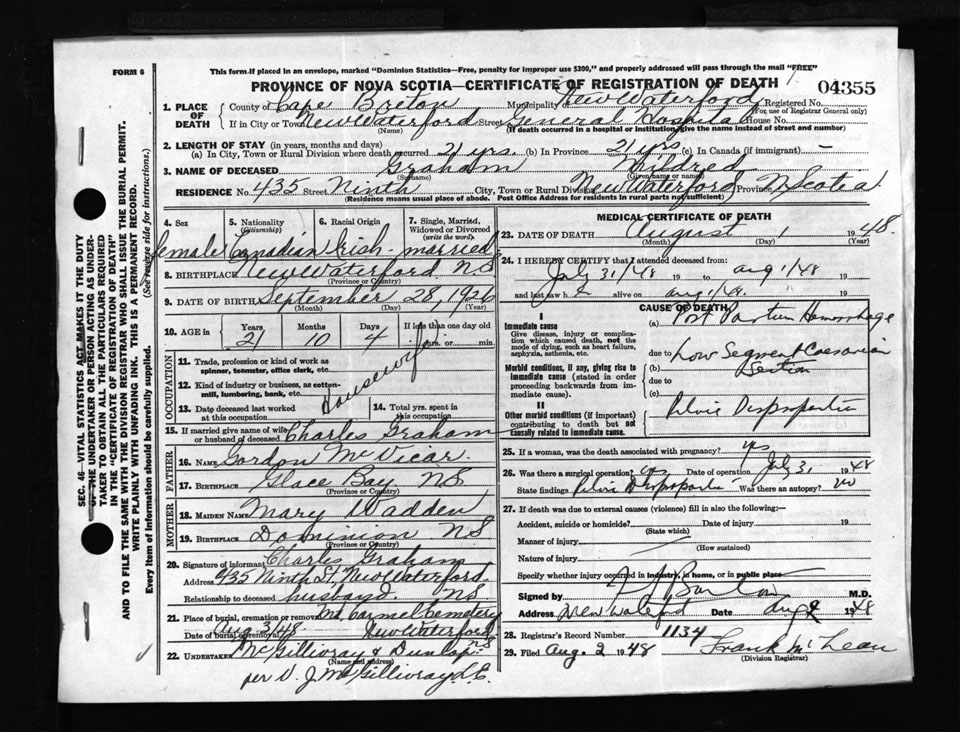 FORM 6
This form if placed in an envelope, marked "Dominion Statistics—Free, penalty for improper use $300," and properly addressed will pass through the mail "FREE"
PROVINCE OF NOVA SCOTIA—CERTIFICATE OF REGISTRATION OF DEATH
04355
1. PLACE OF DEATH
County of Cape Breton Municipality New Waterford Registered No.
(For use of Registrar General only)
If in City or Town New Waterford Street General Hospital House No.
(Name) (If death occurred in a hospital or institution, give the name instead of street and number)
2. LENGTH OF STAY (in years, months and days)
(a) In City, Town or Rural Division where death occurred 21 yrs. (b) In Province 21 yrs (c) In Canada (if immigrant) -
3. NAME OF DECEASED Graham Mildred
(Surname) (Given name or names)
RESIDENCE No. 435 Street Ninth City, Town or Rural Division New Waterford Province N Scotia
(Residence means usual place of abode. Post Office Address for residents in rural parts not sufficient)
4. Sex 5. Nationality (Citizenship) 6. Racial Origin 7. Single, Married, Widowed or Divorced (write the word)
female Canadian Irish - married
8. BIRTHPLACE New Waterford NS
(Province or Country)
9. DATE OF BIRTH September 28, 1926
(Month) (Day) (Year)
10. AGE in Years Months Days If less than one day old
21 10 4 hrs. or min.
OCCUPATION
11. Trade, profession or kind of work as spinner, teamster, office clerk, etc.
Housewife
12. Kind of industry or business, as cotton-mill, lumbering, bank, etc.
13. Date deceased last worked at this occupation
14. Total yrs. spent in this occupation
15. If married give name of wife or husband of deceased Charles Graham
FATHER
16. NAME Gordon McVicar
17. BIRTHPLACE Glace Bay NS
(Province or Country)
MOTHER
18. MAIDEN NAME Mary Wadden
19. BIRTHPLACE Dominion NS
(Province or Country)
20. Signature of informant Charles Graham
Address 435 Ninth St, New Waterford
Relationship to deceased husband. NS
21. Place of burial, cremation or removal Mt Carmel Cemetery
Date of burial or removal Aug 3/48 New Waterford
22. UNDERTAKER McGillivray & Dunlop NS
(Name and address)
per D. J. McGillivray L.E.
MEDICAL CERTIFICATE OF DEATH
23. DATE OF DEATH August 1 1948.
(Month) (Day) (Year)
24. I HEREBY CERTIFY that I attended deceased from:
July 31/48 to aug 1/48
and last saw h alive on aug 1/48. 19
CAUSE OF DEATH
I
Immediate cause
Give disease, injury or complication which caused death, not the mode of dying, such as heart failure, asphyxia, asthenia, etc.
(a) Post Partum Hemorrhage
due to Low Segment Caesarian Section
Morbid conditions, if any, giving rise to immediate cause (stated in order proceeding backwards from immediate cause).
(b)
due to
(c)
II
Other morbid conditions (if important) contributing to death but not causally related to immediate cause.
Pelvic Disproportion
25. If a woman, was the death associated with pregnancy? yes
26. Was there a surgical operation? yes Date of operation July 31 1948
State findings Pelvic Disproportion Was there an autopsy? no
27. If death was due to external causes (violence) fill in also the following:—
Accident, suicide or homicide? Date of injury 19
(State which)
Manner of injury
(How sustained)
Nature of injury
Specify whether injury occurred in industry, in home, or in public place
Signed by M.D.
Address New Waterford Date Aug 2 1948
28. Registrar's Record Number 1134
29. Filed Aug. 2 1948 Frank McLean
(Division Registrar)
SEC. 46—VITAL STATISTICS ACT MAKES IT THE DUTY
OF THE UNDERTAKER OR PERSON ACTING AS UNDER-
TAKER TO OBTAIN ALL THE PARTICULARS REQUIRED
IN THE "CERTIFICATE OF REGISTRATION OF DEATH"
AND TO FILE THE SAME WITH THE DIVISION REGISTRAR WHO SHALL ISSUE THE BURIAL PERMIT.
WRITE PLAINLY WITH UNFADING INK. THIS IS A PERMANENT RECORD.
Every item of information should be carefully supplied. (See reverse side for instructions.)